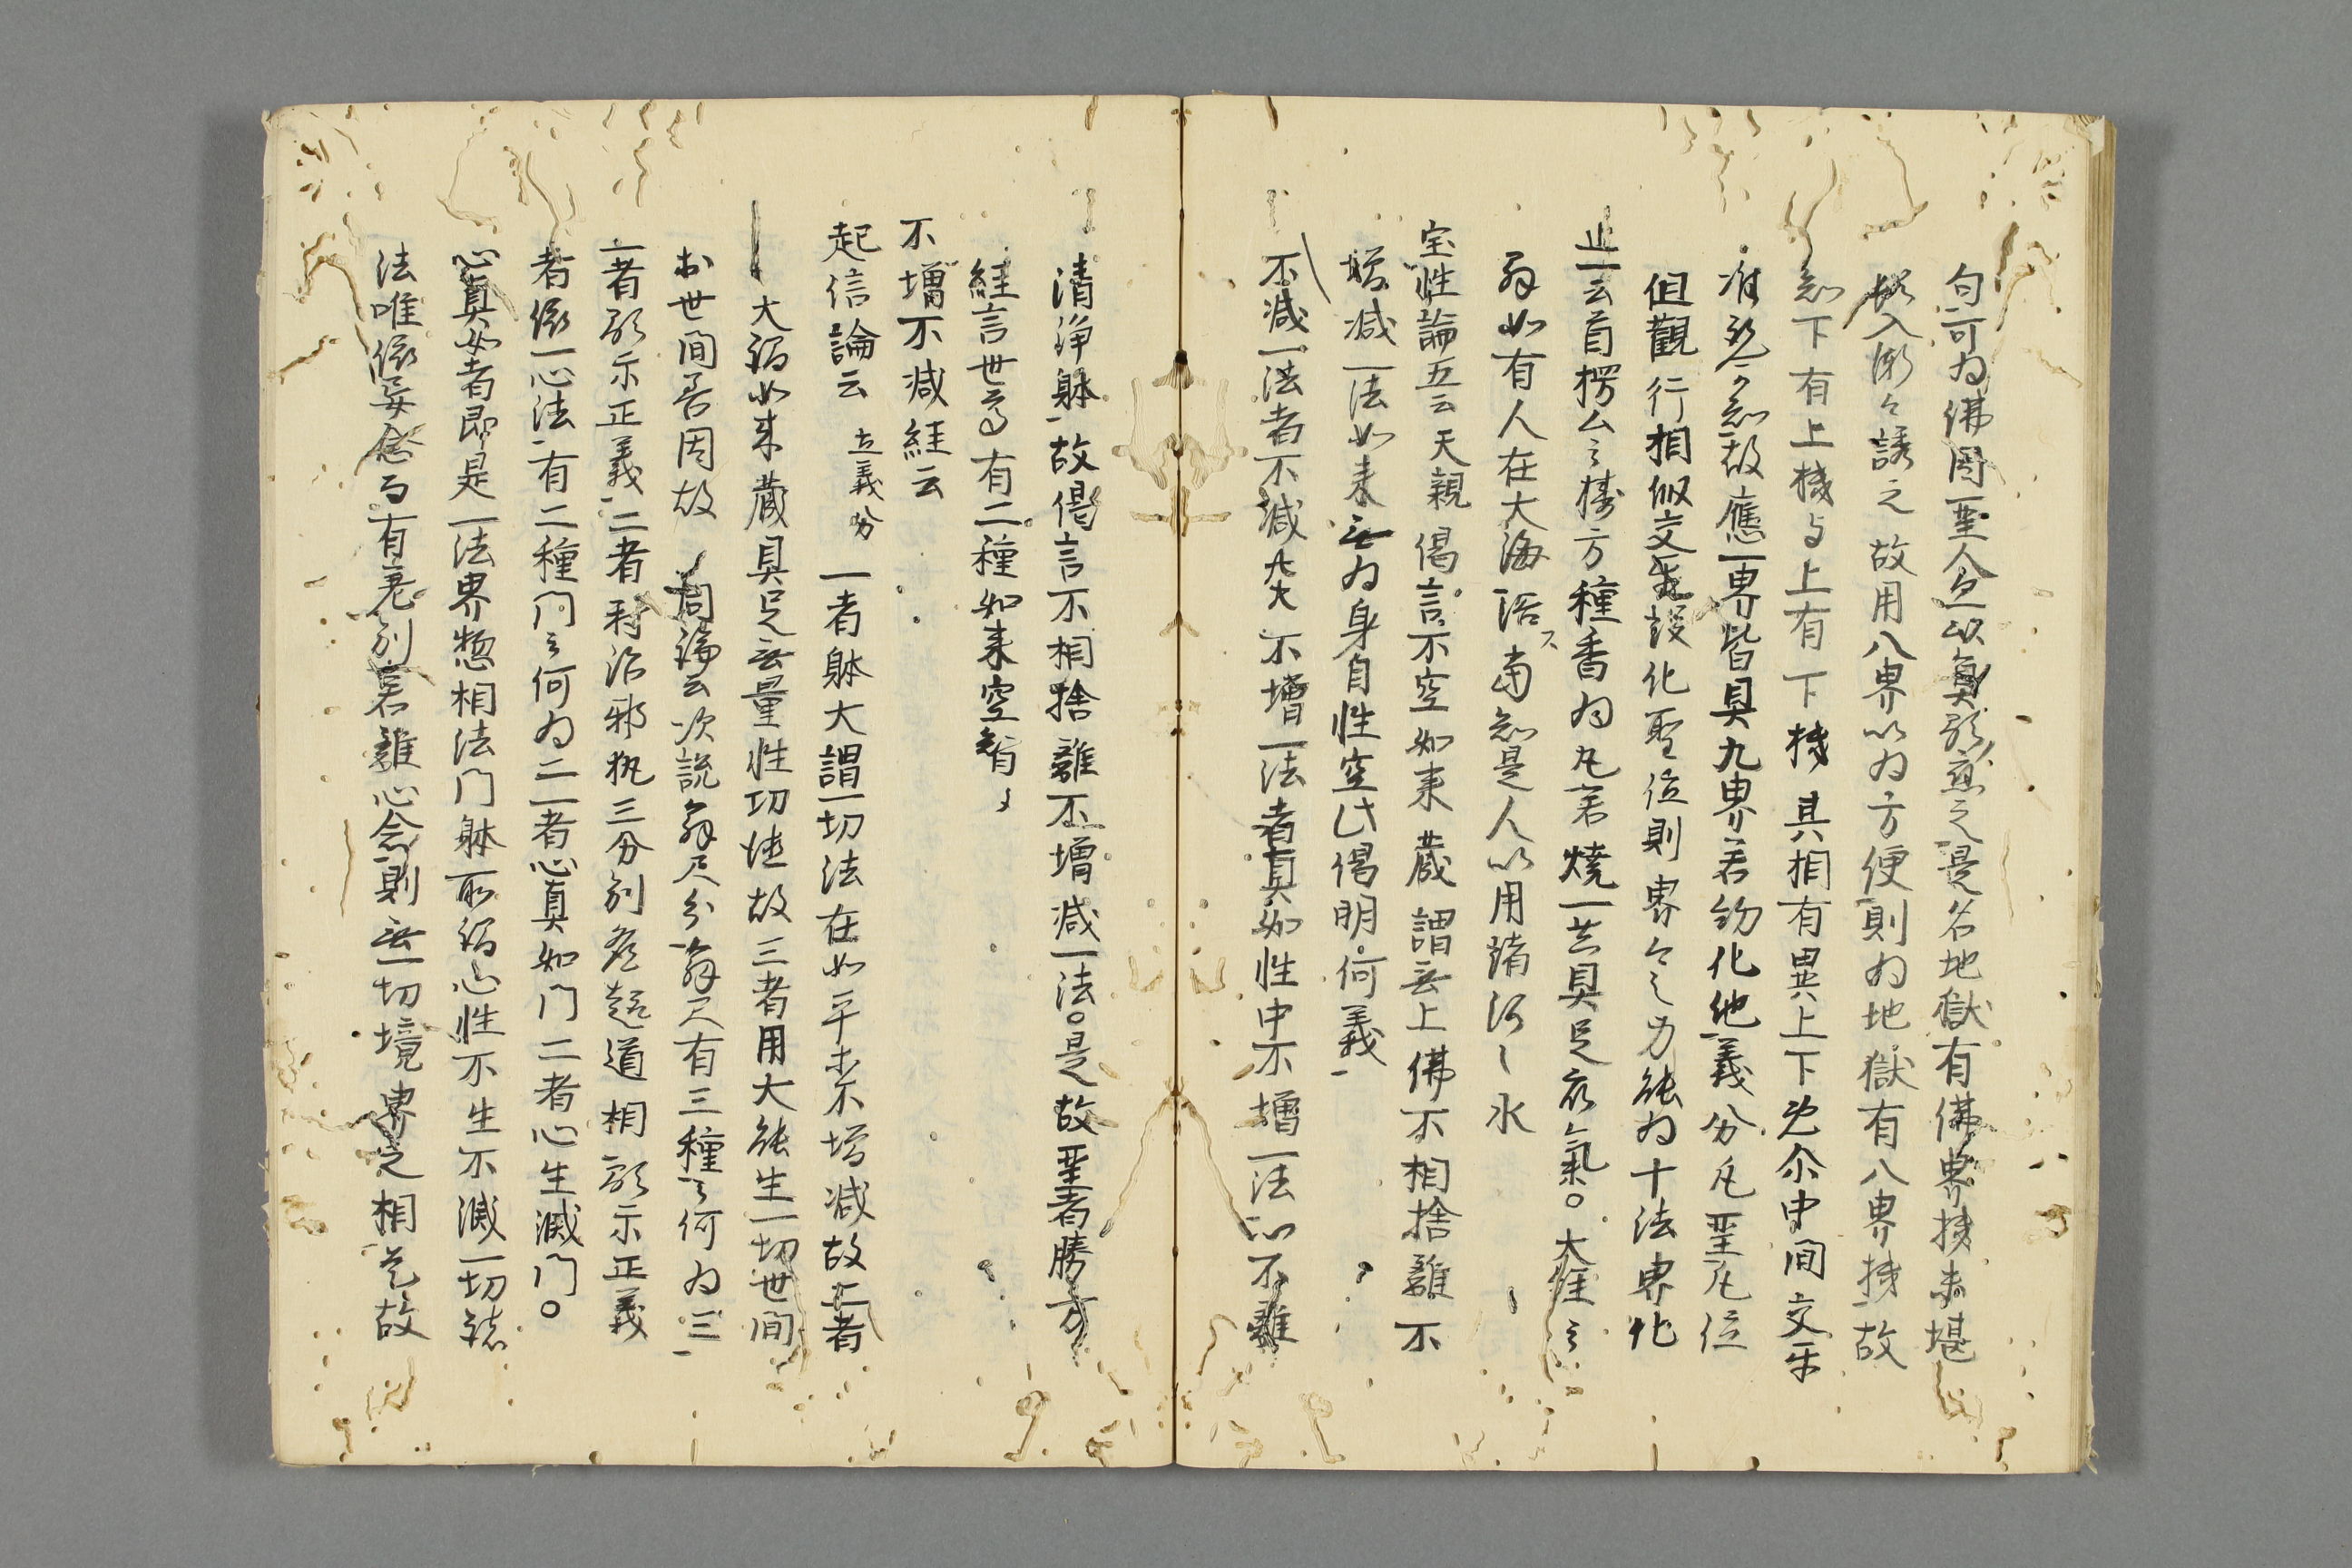 句可為佛因聖人以真形益之是名地獄有佛界機未堪
入漸々誘之故用八界以為方便則為地獄有八界機故
知下有上機与上有下機其相有異上下既尒中間交
知故應一界皆具九界若約化他義分凡聖凡位
但觀行相似交設化聖位則界々之力能為十法界化
止一云首楞厶云擣万種香為丸若燒一塵具足衆氣。大経云
如有人在大海浴當知是人以用諸河之水
宝性論五云天親偈言不空如来藏謂無上佛不相捨離不
増減一法如来無為身自性空此偈明何義
不減一法者不減煩悩不増一法者真如性中不増一法以不離
清浄躰故偈言不相捨離不増減一法。是故聖者勝方
経言世尊有二種如来空智々
不増不減経云
起信論云 立義分 一者躰大謂一切法在如平等不増減故二者
大謂如来藏具足無量性功徳故三者用大能生一切世間
出世間善因故 同論云次説解釈分解釈有三種云何為三
一者顕示正義二者対治邪執三分別発趣道相顕示正義
者依一心法有二種門云何為二一者心真如門二者心生滅門。
心真如者即是一法界惣相法門躰所謂心性不生不滅一切諸
法唯依妄念而有差別若離心念則無一切境界之相是故